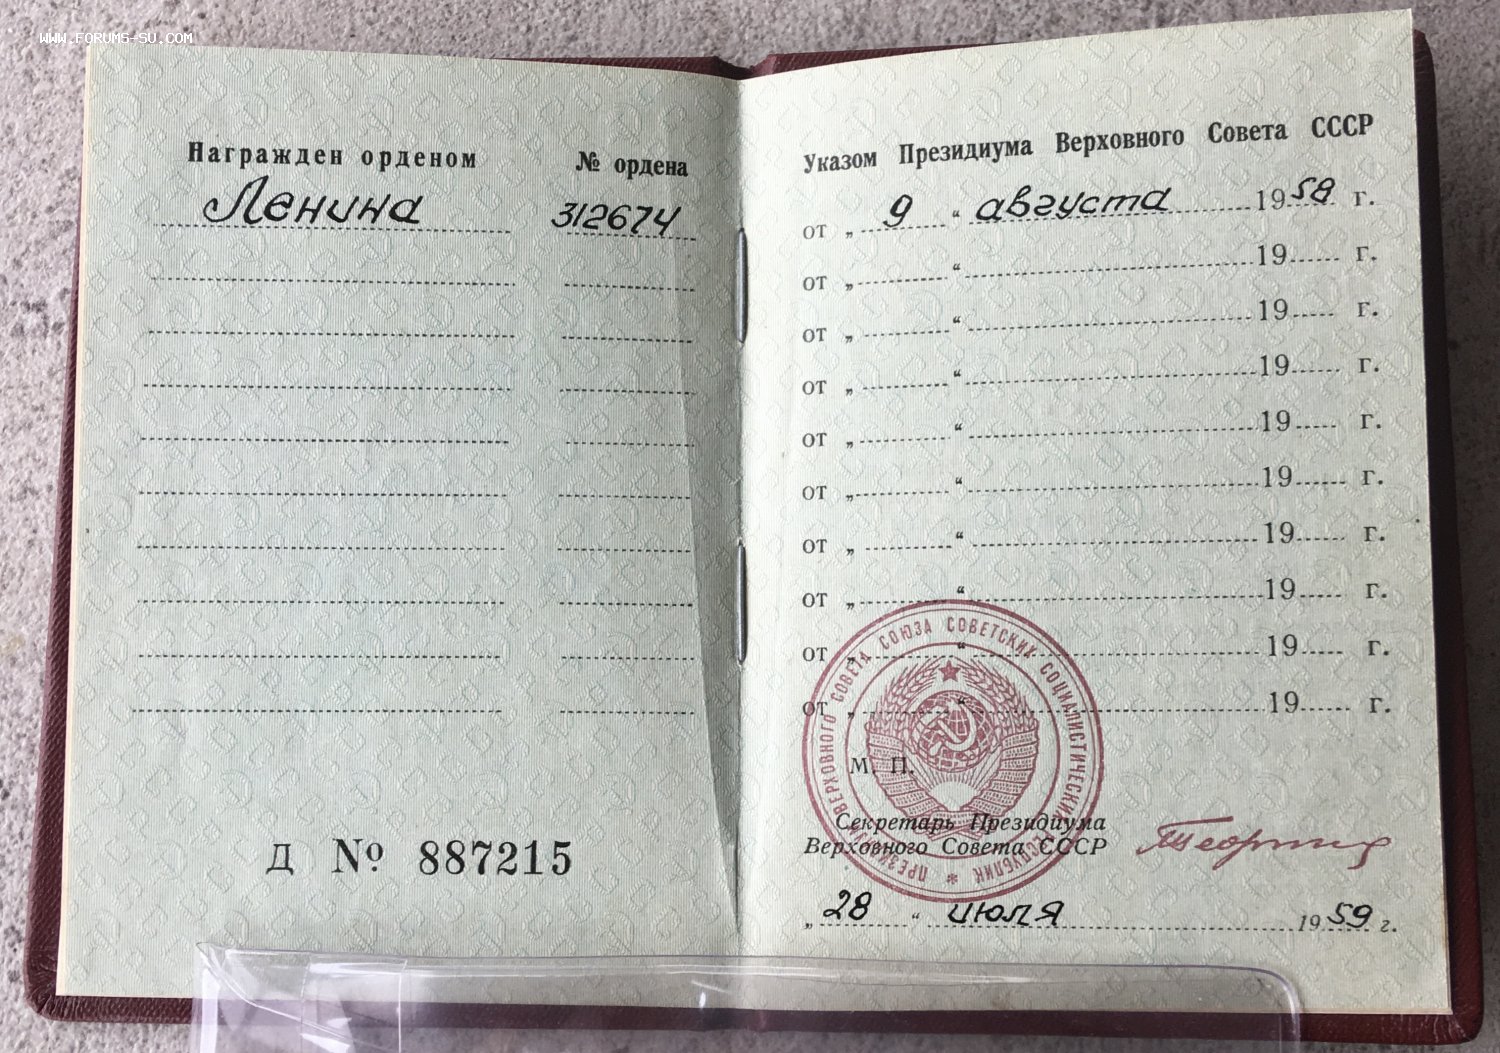 WWW.FORUMS-SU.COM
Награжден орденом № ордена
Ленина 312674
Д № 887215
Указом Президиума Верховного Совета СССР
от „ 9 “ августа 1958 г.
от „ “ 19 г.
от „ “ 19 г.
от „ “ 19 г.
от „ “ 19 г.
от „ “ 19 г.
от „ “ 19 г.
от „ “ 19 г.
от „ “ 19 г.
от „ “ 19 г.
ПРЕЗИДИУМ ВЕРХОВНОГО СОВЕТА СОЮЗА СОВЕТСКИХ СОЦИАЛИСТИЧЕСКИХ РЕСПУБЛИК
М. П.
Секретарь Президиума
Верховного Совета СССР
„ 28 “ июля 1959 г.